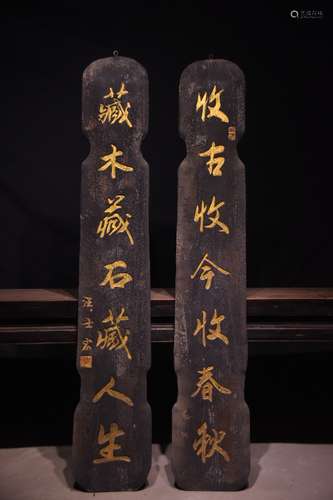 收古收今收春秋
藏木藏石藏人生